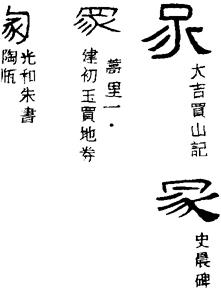 冢
大吉買山記
冢
史晨碑
冢
里一．
建初玉買地券
冢
光和朱書
陶瓶